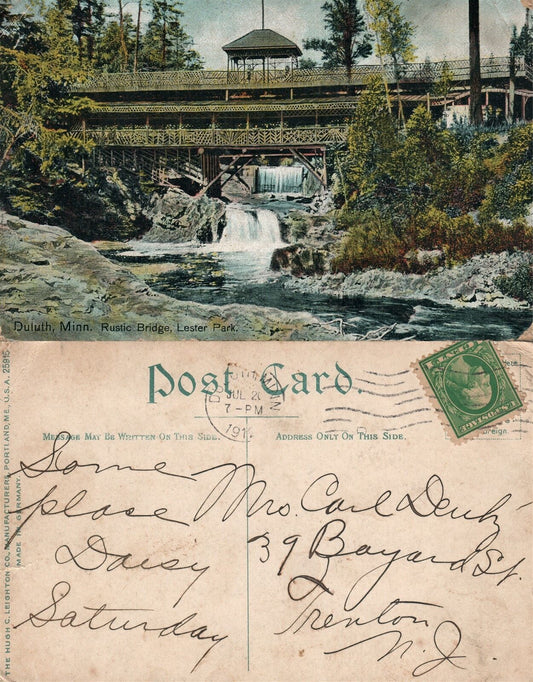 Duluth, Minn. Rustic Bridge, Lester Park.
THE HUGH C. LEIGHTON CO., MANUFACTURERS, PORTLAND, ME., U.S.A. 25915
MADE IN GERMANY.
Post Card.
JUL 20
7-PM
191
MESSAGE MAY BE WRITTEN ON THIS SIDE.
ADDRESS ONLY ON THIS SIDE.
Some
place
Daisy
Saturday
Mrs. Carl
39 Bayard St.
Trenton
N. J.